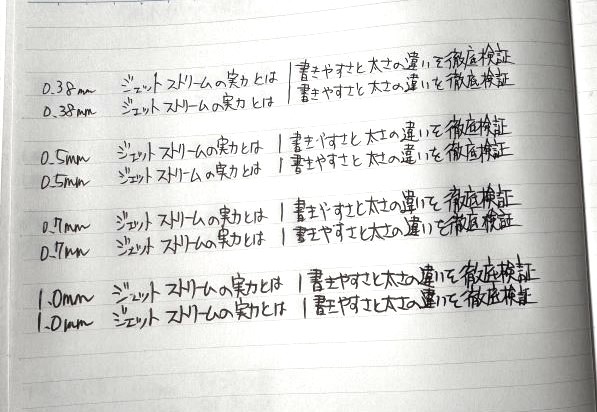 0.38mm ジェットストリームの実力とは | 書きやすさと太さの違いを徹底検証
0.38mm ジェットストリームの実力とは | 書きやすさと太さの違いを徹底検証
0.5mm ジェットストリームの実力とは | 書きやすさと太さの違いを徹底検証
0.5mm ジェットストリームの実力とは | 書きやすさと太さの違いを徹底検証
0.7mm ジェットストリームの実力とは | 書きやすさと太さの違いを徹底検証
0.7mm ジェットストリームの実力とは | 書きやすさと太さの違いを徹底検証
1.0mm ジェットストリームの実力とは | 書きやすさと太さの違いを徹底検証
1.0mm ジェットストリームの実力とは | 書きやすさと太さの違いを徹底検証